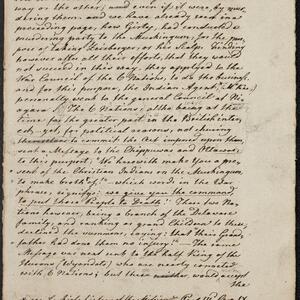 way or the other; and even if it were, by mur-
dering them — and we have already seen in a
preceding page, how Girty, had conducted a
murdering party to the Muskingum, for the pur-
pose of taking Zeisberger, or his Scalp. Finding
however after all their efforts, that they would
not succeed in this way, they applied to the
War Council of the 6 Nations, to do the business,
and for this purpose, the Indian Agent, Mc Kee
personally went to the general Council at Ni-
agara. The 6 Nations, altho' being at that
time for the greater part in the British inter-
est — yet, for political reasons, not chusing
themselves to commit the Act imposed upon them,
sent a Message to the Chippuwas and Ottawas,
to this purport; "We herewith make you a pre-
sent of the Christian Indians on the Muskingum
to make broth of." — which word in the In-
phrase, signifies: we give you the command
to put these People to Death! These two Na-
tions however, being a branch of the Delaware
family, and ranking as grand Children to them,
declined the summons, saying: "that their Grand-
father had done them no injury". — The same
Message was next sent to the half King of the
Hurons (Wyandots) who are nearly connected
with 6 Nations; but these neither would accept
the